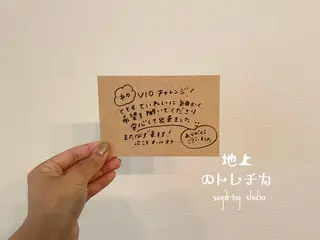 初
VIO チャレンジ!
とても ていねいに 細かく
希望を 聞いてくださり
安心して 出来ました
また必ず 来ます!
ありがとう
ございました
地上
のトレチカ
sugaring studio